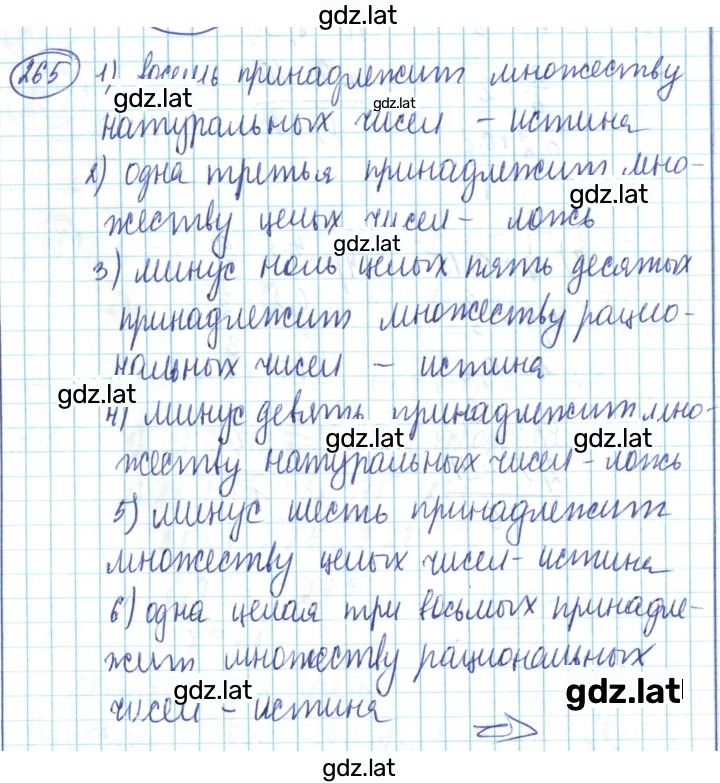 gdz.lat
265 1) восемь принадлежит множеству
gdz.lat gdz.lat
натуральных чисел - истина
2) одна третья принадлежит мно-
gdz.lat
жеству целых чисел - ложь
gdz.lat
3) минус ноль целых пять десятых
принадлежит множеству рацио-
нальных чисел - истина
gdz.lat
4) минус девять принадлежит мно-
gdz.lat gdz.lat
жеству натуральных чисел - ложь
5) минус шесть принадлежит
множеству целых чисел - истина
6) одна целая три восьмых принадле-
жит множеству рациональных
gdz.lat gdz.lat
чисел - истина
gdz.lat